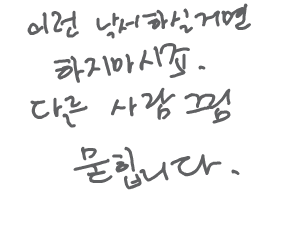 이런 낙서하실거면
하지마시죠.
다른 사람 그림
묻힙니다.